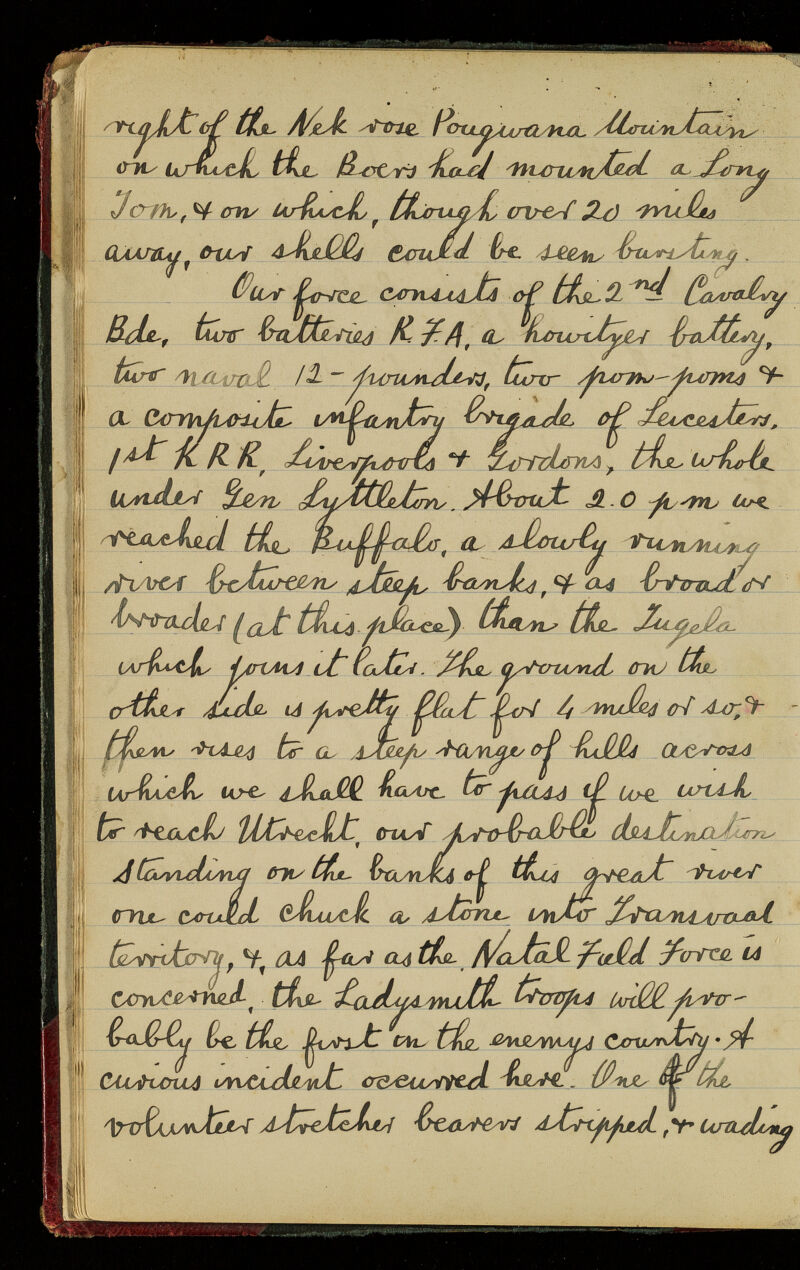 right of the Nek rose Pougwana Mountain
on which the Boers had mounted a Long
Tom, & on which, though over 20 miles
away, our shells could be seen bursting.
Our force consists of the 2nd Cavalry
Bde, two batteries R.F.A, a howitzer battery,
two naval 12-pounders, two pom-poms &
a composite infantry brigade of Leicesters,
1st K R R, Liverpools & Gordons, the whole
under Gen Lyttleton. About 2.0 p-m we
reached the Buffalo, a slowly running
river between steep banks, & as broad or
broader (at this place) than the Tugela
which joins it later. The ground on the
other side is pretty flat for 4 miles or so, &
then rises to a steep range of hills across
which we shall have to pass if we wish
to reach Utrecht, our probable destination
Standing on the banks of this great river
one could chuck a stone into Transvaal
territory, &, as far as the Natal Field Force is
concerned, the Ladysmith troops will pro-
bably be the first in the enemys country. A
curious incident occurred here. One of the
volunteer stretcher bearers stripped, & wading